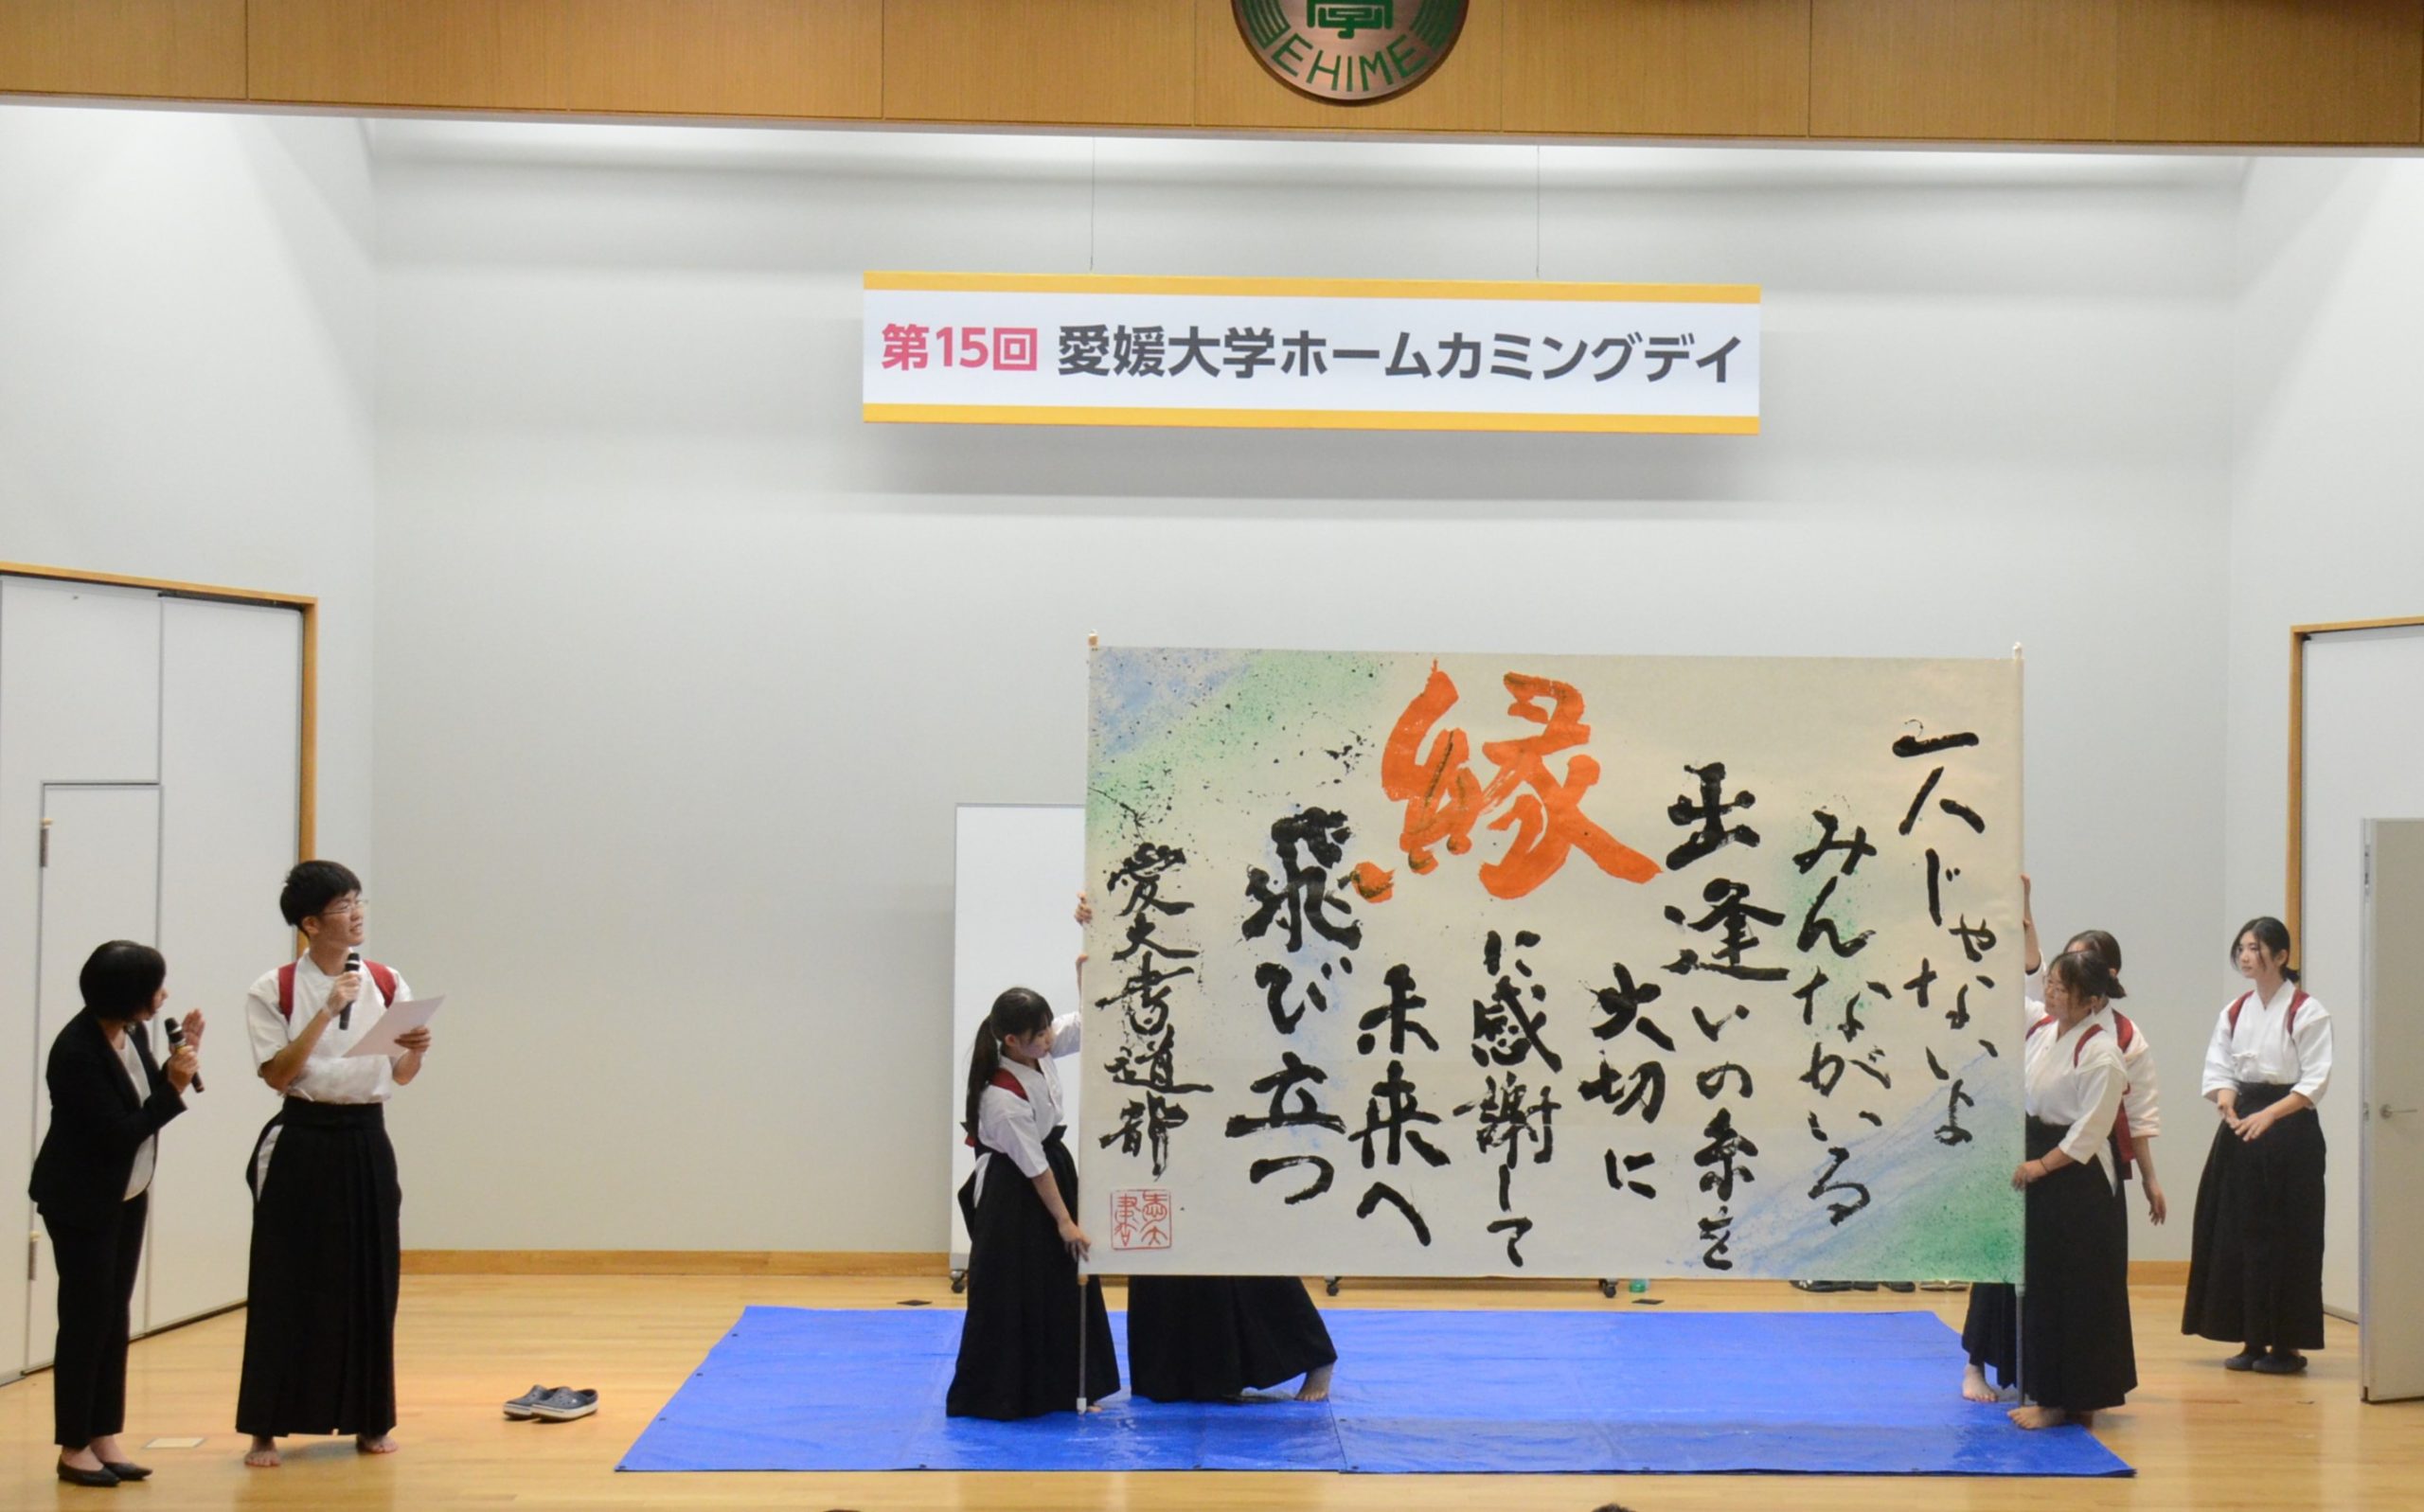 EHIME
第15回 愛媛大学ホームカミングデイ
一人じゃないよ
みんながいる
出逢いの糸を
大切に
縁
に感謝して
未来へ
飛び立つ
愛大書道部